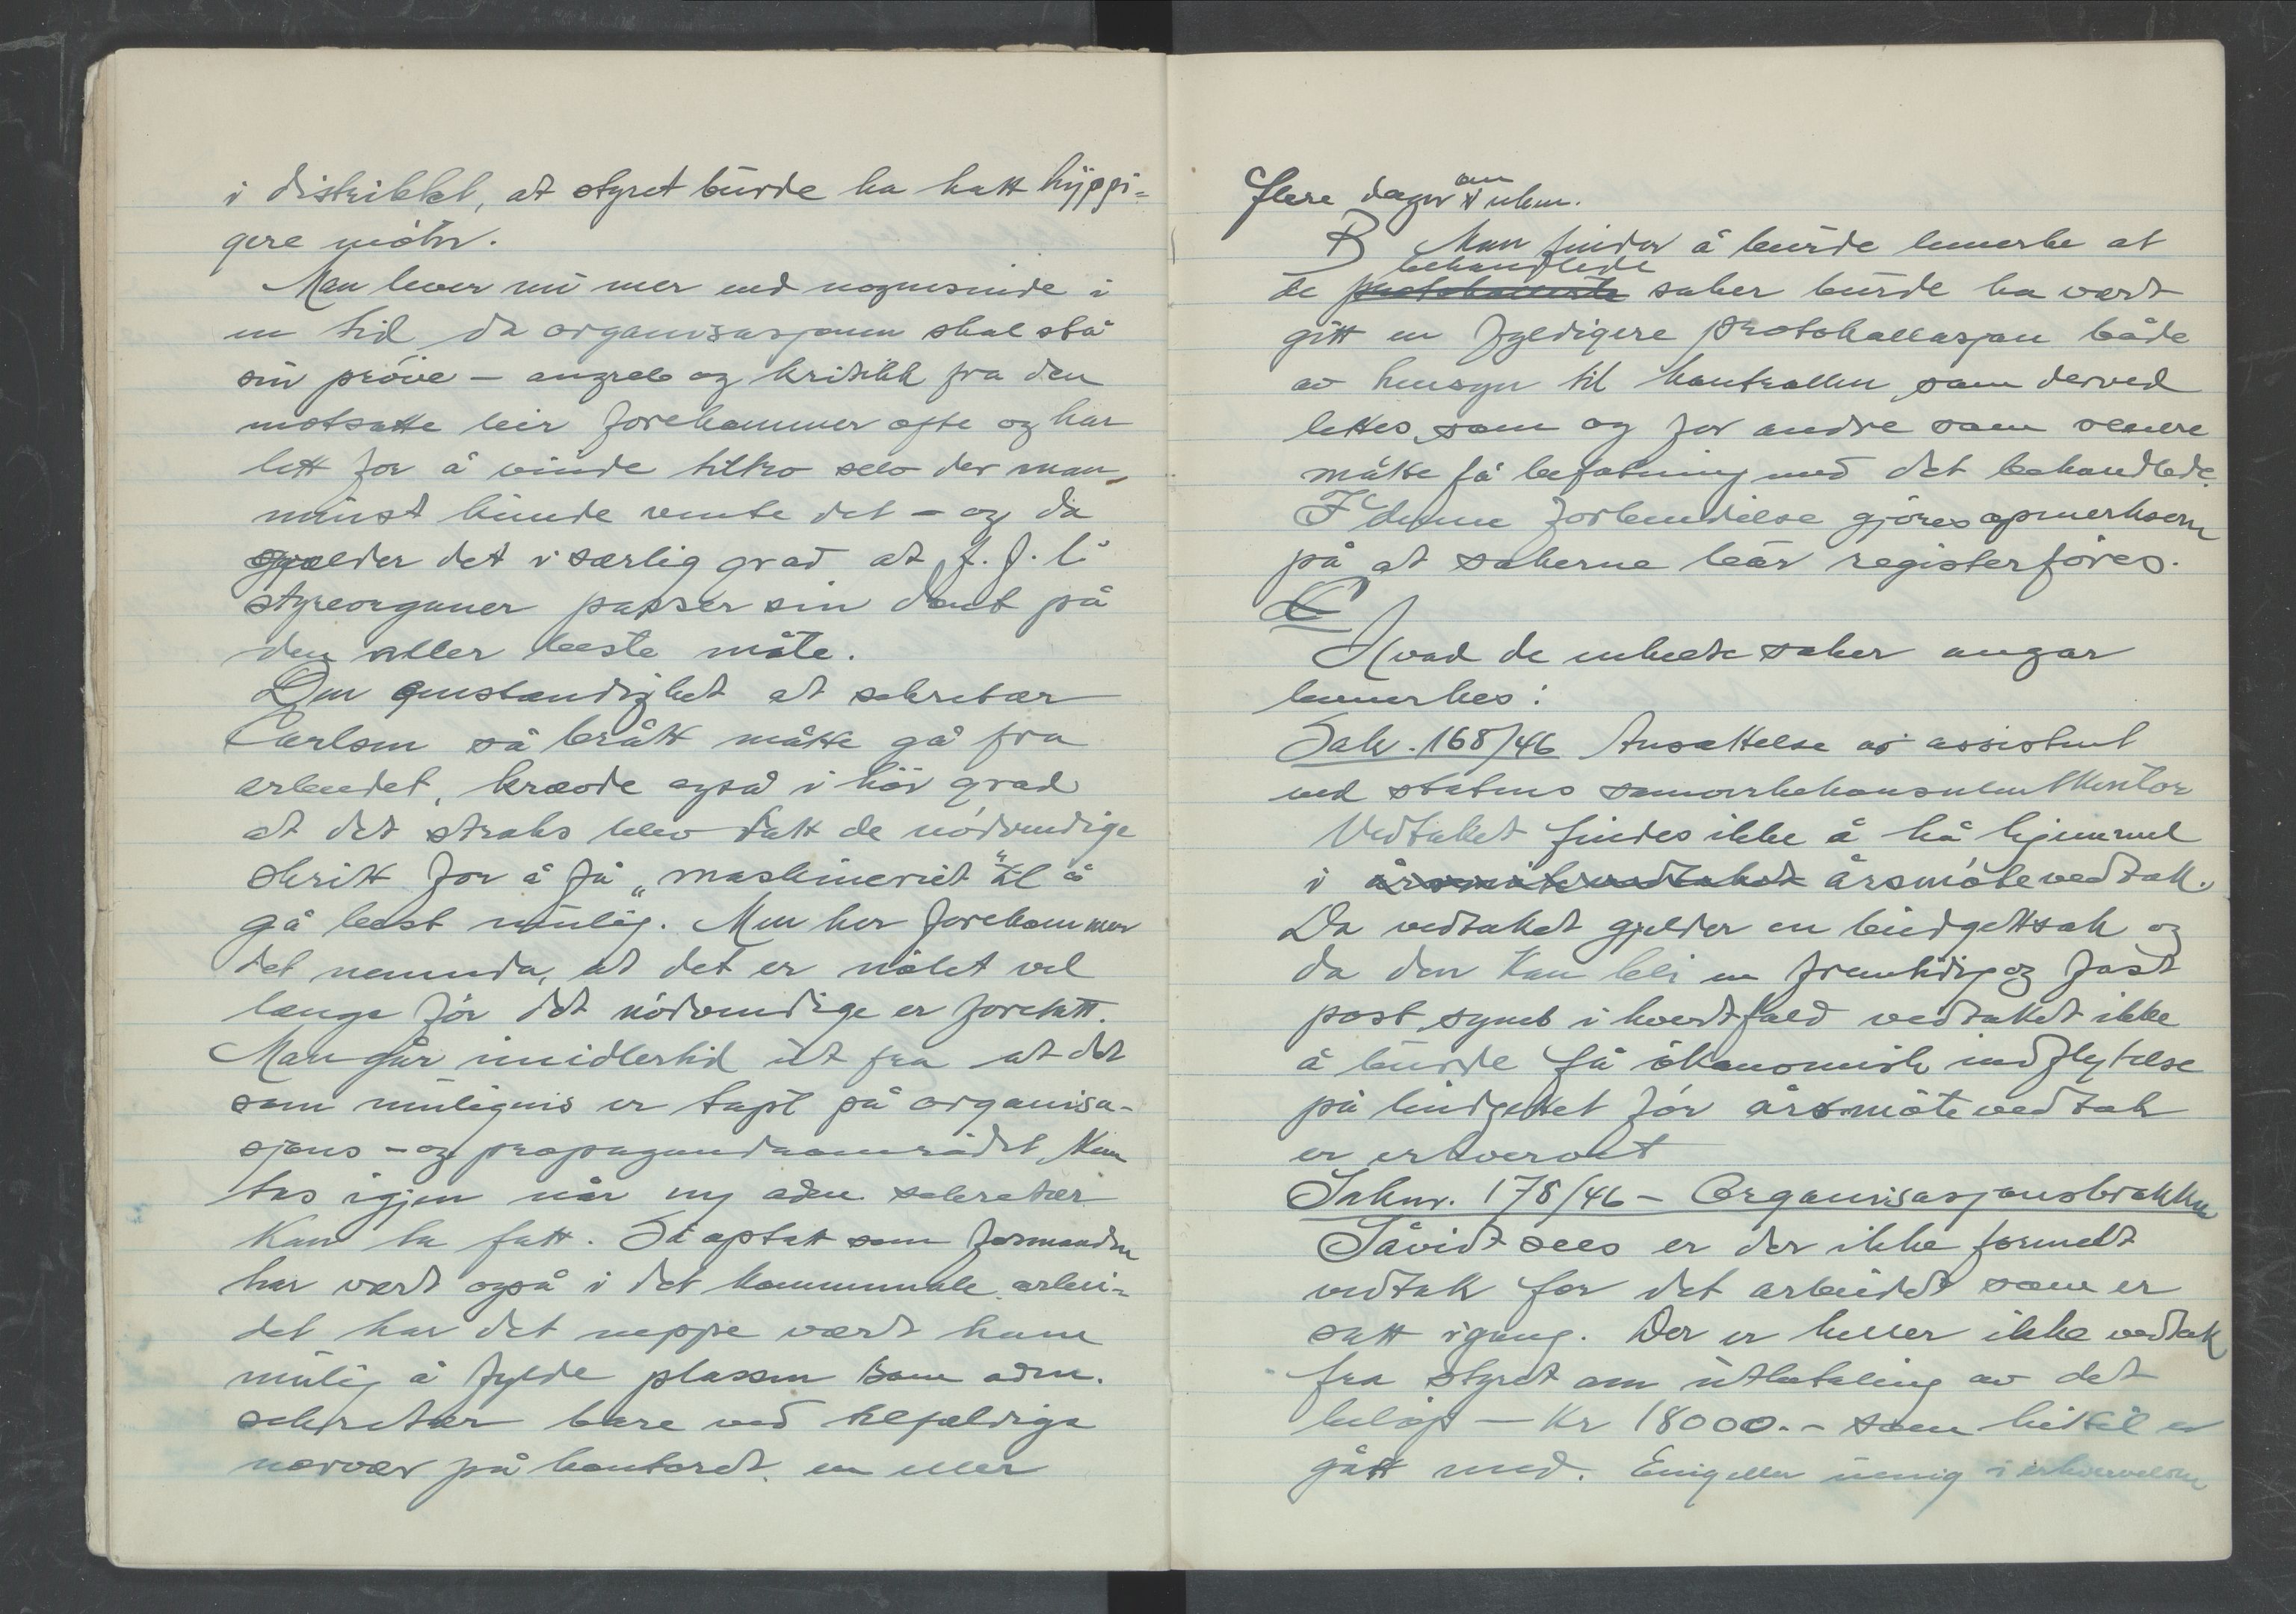 i distriktet, at styret burde ha hatt hyppi-
gere møter.
Man lever nu mer end nogensinde i
en tid da organisasjonen skal stå
sin prøve - angreb og kritikk fra den
motsatte leir forekommer ofte og har
lett for å vinde tiltro selv der man
minst kunde vente det - og da
gjælder det i særlig grad at f. f. l's
styreorganer passer sin dont på
den aller beste måte.
Den omstændighet at sekretær
Carlsen så brått måtte gå fra
arbeidet, krævde også i høi grad
at det straks blev tatt de nødvendige
skritt for å få "maskineriet" til å
gå best mulig. Men her forekommer
det nemnda, at det er nølet vel
længe før det nødvendige er foretatt.
Man går imidlertid ut fra at det
som muligens er tapt på organisa-
sjons - og propagandaområdet kan
tas igjen når ny adm. sekretær
kan ta fatt. Så optatt som formanden
har vært også i det kommunale arbei-
det har det neppe vært ham
mulig å fylde plassen som adm.
sekretær bare ved tilfældige
nærvær på kontoret en eller
flere dager om uken.
B Man finder å burde bemerke at
behandlede
de protokollerte saker burde ha vært
gitt en fyldigere protokollasjon både
av hensyn til kontrollen, som derved
lettes, som og for andre som senere
måtte få befatning med det behandlede.
I denne forbindelse gjøres opmerksom
på at sakerne bør registerføres.
C
Hvad de enkelte saker angår
bemerkes:
Sak. 168/46 Ansettelse av assistent
ved statens samvirkekonsulentkontor
Vedtaket findes ikke å ha hjemmel
i årsmøtevedtaket årsmøtevedtak.
Da vedtaket gjelder en budgettsak og
da den kan bli en fremtidig og fast
post, synes i hvertfald vedtaket ikke
å burde få økonomisk indflytelse
på budgettet før årsmøtevedtak
er erhvervet
Saknr. 178/46 - Organisasjonsbrakken
Såvidt sees er der ikke formelt
vedtak for det arbeidet som er
satt igang. Der er heller ikke vedtak
fra styret om utbetaling av det
beløp - Kr 18000.- som hittil er
gått med. Enig eller uenig i erhvervelsen